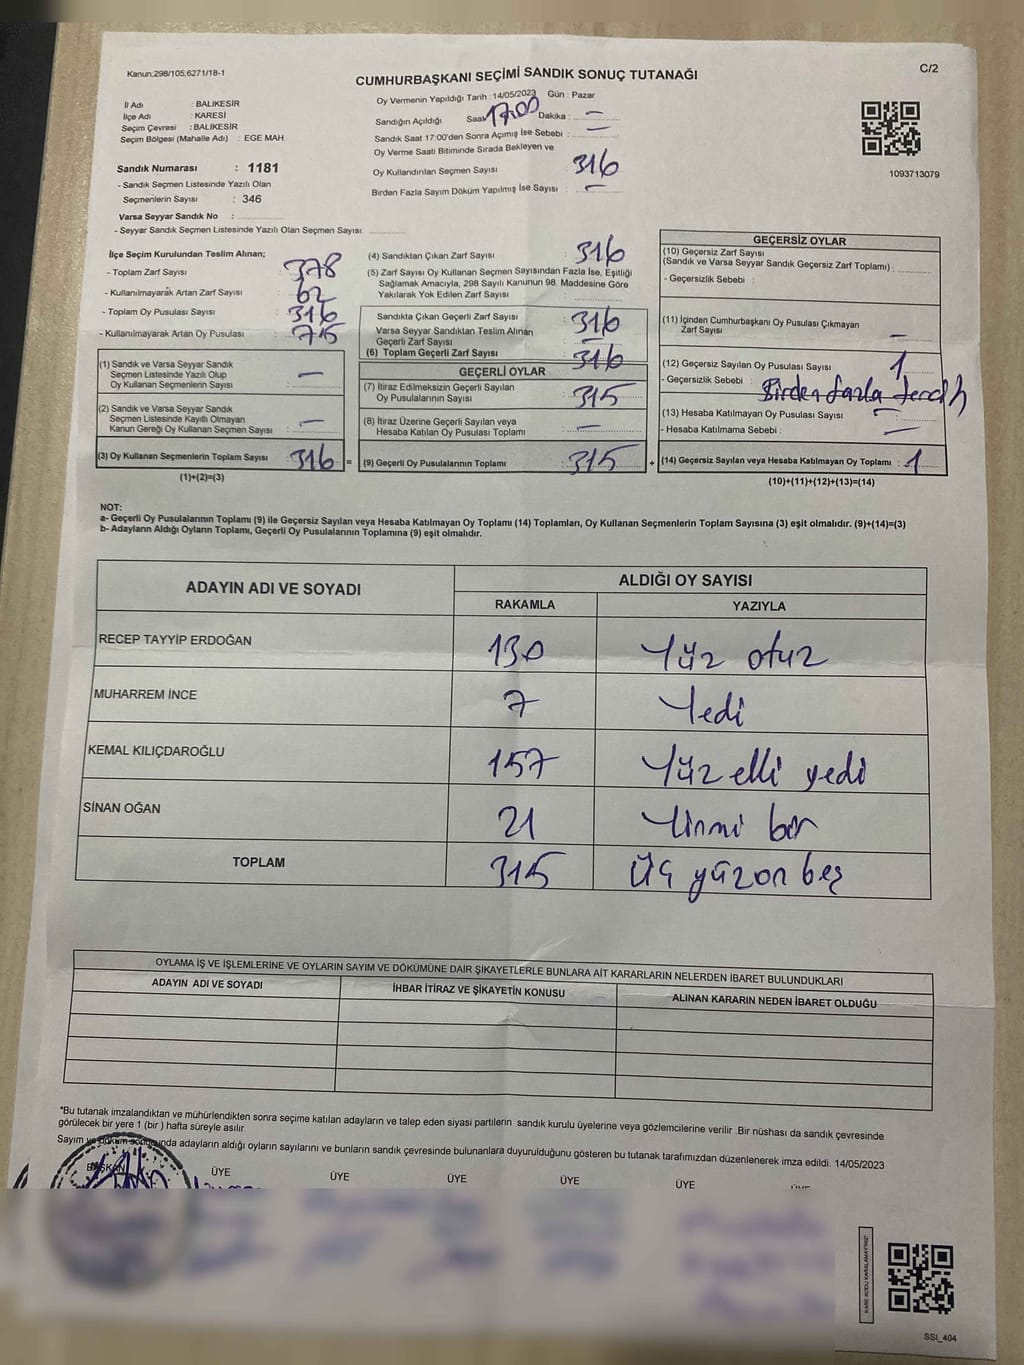 Kanun:298/105,6271/18-1
C/2
CUMHURBAŞKANI SEÇİMİ SANDIK SONUÇ TUTANAĞI
Oy Vermenin Yapıldığı Tarih : 14/05/2023 Gün : Pazar
İl Adı : BALIKESİR
İlçe Adı : KARESİ
Seçim Çevresi : BALIKESİR
Seçim Bölgesi (Mahalle Adı) : EGE MAH.
Sandığın Açıldığı Saat 17.00 Dakika : —
Sandık Saat 17:00'den Sonra Açımış İse Sebebi : —
Oy Verme Saati Bitiminde Sırada Bekleyen ve
Oy Kullandırılan Seçmen Sayısı : 316
Birden Fazla Sayım Döküm Yapılmış İse Sayısı : —
1093713079
Sandık Numarası : 1181
- Sandık Seçmen Listesinde Yazılı Olan
Seçmenlerin Sayısı : 346
Varsa Seyyar Sandık No :
- Seyyar Sandık Seçmen Listesinde Yazılı Olan Seçmen Sayısı:
İlçe Seçim Kurulundan Teslim Alınan;
- Toplam Zarf Sayısı : 378
- Kullanılmayarak Artan Zarf Sayısı : 62
- Toplam Oy Pusulası Sayısı : 316
- Kullanılmayarak Artan Oy Pusulası : 715
(1) Sandık ve Varsa Seyyar Sandık
Seçmen Listesinde Yazılı Olup
Oy Kullanan Seçmenlerin Sayısı : —
(2) Sandık ve Varsa Seyyar Sandık
Seçmen Listesinde Kayıtlı Olmayan
Kanun Gereği Oy Kullanan Seçmen Sayısı : —
(3) Oy Kullanan Seçmenlerin Toplam Sayısı : 316 =
(1)+(2)=(3)
(4) Sandıktan Çıkan Zarf Sayısı : 316
(5) Zarf Sayısı Oy Kullanan Seçmen Sayısından Fazla İse, Eşitliği
Sağlamak Amacıyla, 298 Sayılı Kanunun 98. Maddesine Göre
Yakılarak Yok Edilen Zarf Sayısı :
Sandıkta Çıkan Geçerli Zarf Sayısı : 316
Varsa Seyyar Sandıktan Teslim Alınan
Geçerli Zarf Sayısı : —
(6) Toplam Geçerli Zarf Sayısı : 316
GEÇERLİ OYLAR
(7) İtiraz Edilmeksizin Geçerli Sayılan
Oy Pusulalarının Sayısı : 315
(8) İtiraz Üzerine Geçerli Sayılan veya
Hesaba Katılan Oy Pusulası Toplamı : —
(9) Geçerli Oy Pusulalarının Toplamı : 315 +
GEÇERSİZ OYLAR
(10) Geçersiz Zarf Sayısı
(Sandık ve Varsa Seyyar Sandık Geçersiz Zarf Toplamı) :
- Geçersizlik Sebebi :
(11) İçinden Cumhurbaşkanı Oy Pusulası Çıkmayan
Zarf Sayısı : —
(12) Geçersiz Sayılan Oy Pusulası Sayısı : 1
- Geçersizlik Sebebi : Birden fazla tercih
(13) Hesaba Katılmayan Oy Pusulası Sayısı : —
- Hesaba Katılmama Sebebi : —
(14) Geçersiz Sayılan veya Hesaba Katılmayan Oy Toplamı : 1
(10)+(11)+(12)+(13)=(14)
NOT:
a- Geçerli Oy Pusulalarının Toplamı (9) ile Geçersiz Sayılan veya Hesaba Katılmayan Oy Toplamı (14) Toplamları, Oy Kullanan Seçmenlerin Toplam Sayısına (3) eşit olmalıdır. (9)+(14)=(3)
b- Adayların Aldığı Oyların Toplamı, Geçerli Oy Pusulalarının Toplamına (9) eşit olmalıdır.
ADAYIN ADI VE SOYADI ALDIĞI OY SAYISI
RAKAMLA YAZIYLA
RECEP TAYYİP ERDOĞAN 130 Yüz otuz
MUHARREM İNCE 7 Yedi
KEMAL KILIÇDAROĞLU 157 Yüz elli yedi
SİNAN OĞAN 21 Yirmi bir
TOPLAM 315 Üç yüz on beş
OYLAMA İŞ VE İŞLEMLERİNE VE OYLARIN SAYIM VE DÖKÜMÜNE DAİR ŞİKAYETLERLE BUNLARA AİT KARARLARIN NELERDEN İBARET BULUNDUKLARI
ADAYIN ADI VE SOYADI İHBAR İTİRAZ VE ŞİKAYETİN KONUSU ALINAN KARARIN NEDEN İBARET OLDUĞU
*Bu tutanak imzalandıktan ve mühürlendikten sonra seçime katılan adayların ve talep eden siyasi partilerin sandık kurulu üyelerine veya gözlemcilerine verilir .Bir nüshası da sandık çevresinde
görülecek bir yere 1 (bir ) hafta süreyle asılır.
Sayım ve döküm sonucunda adayların aldığı oyların sayılarını ve bunların sandık çevresinde bulunanlara duyurulduğunu gösteren bu tutanak tarafımızdan düzenlenerek imza edildi. 14/05/2023
BAŞKAN ÜYE ÜYE ÜYE ÜYE ÜYE
KARE KODU KARALAMAYINIZ!
SSI_404